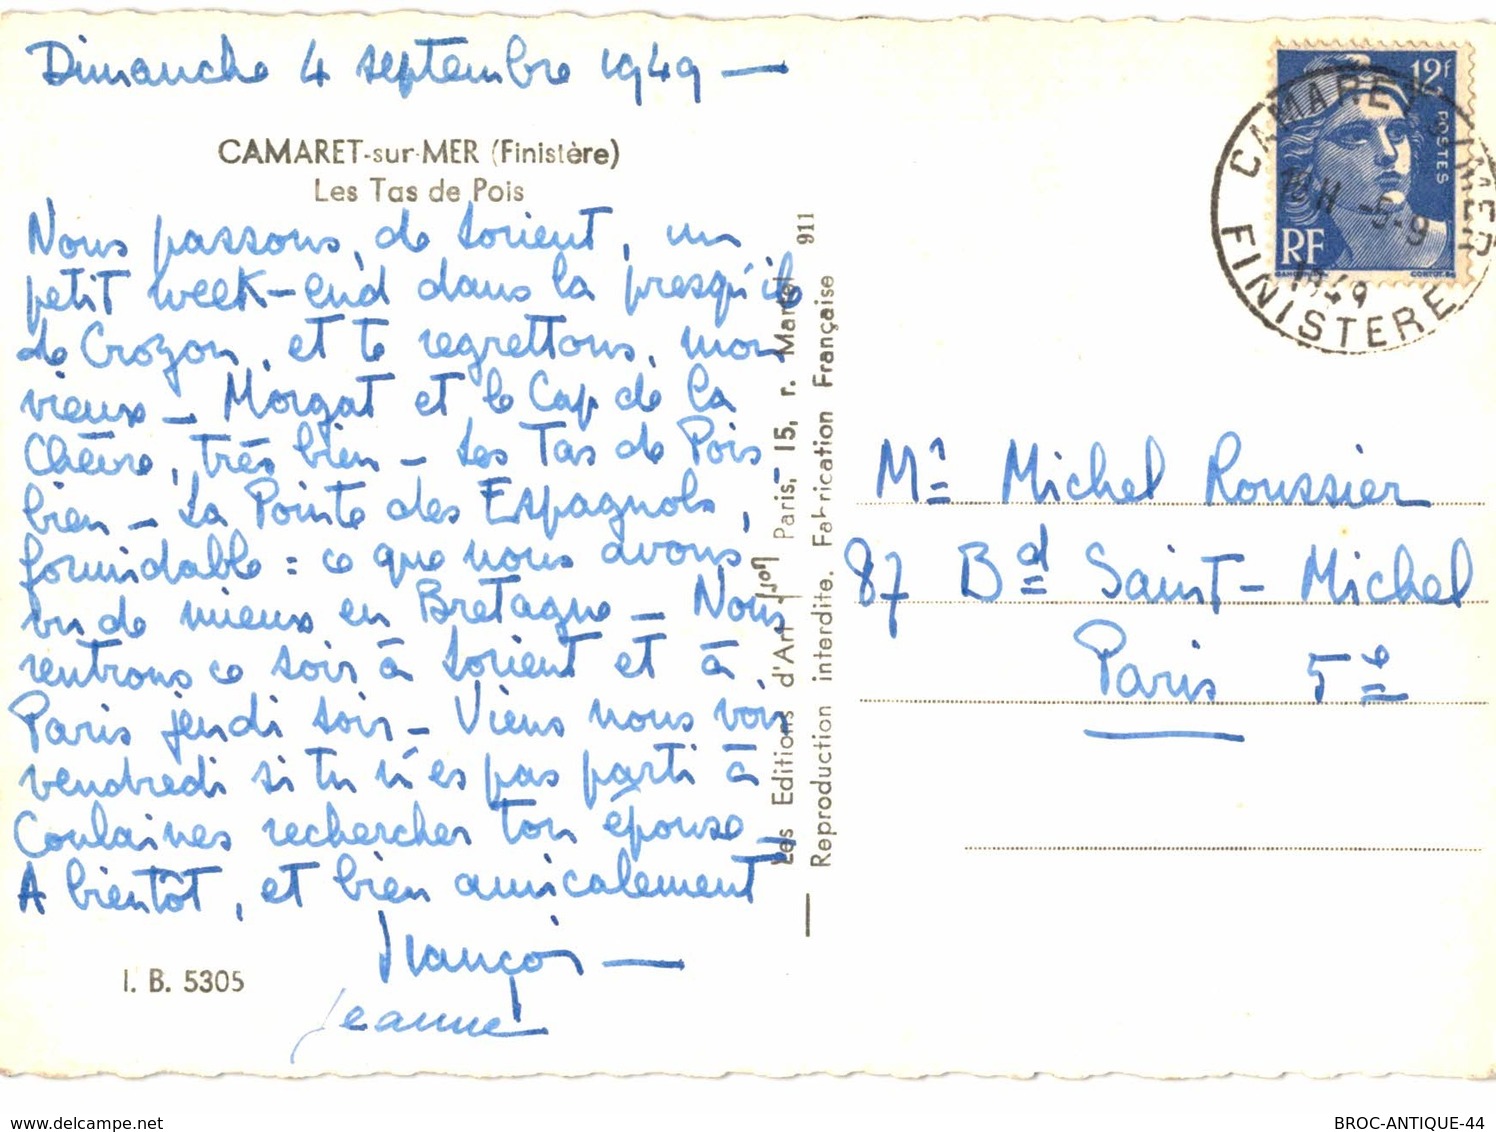 Dimanche 4 septembre 1949 —
CAMARET-sur-MER (Finistère)
Les Tas de Pois
Nous passons, de Lorient, un
petit week-end dans la presqu'île
de Crozon, et te regrettons, mon
vieux — Morgat et le Cap de la
Chèvre, très bien — Les Tas de Pois
bien — La Pointe des Espagnols,
formidable : ce que nous avons
vu de mieux en Bretagne — Nous
rentrons ce soir à Lorient et à
Paris jeudi soir — Viens nous voir
vendredi si tu n'es pas parti à
Coulaines rechercher ton épouse —
A bientôt, et bien amicalement
François —
Jeanne
I. B. 5305
Les Editions d'Art Yvon Paris, 15, r. Martel 911
Reproduction interdite. Fabrication Française
12f
POSTES
RF
CAMARET S/MER
18H 5-9
1949
FINISTERE
Mr Michel Roussier
87 Bd Saint-Michel
Paris 5e
www.delcampe.net
BROC-ANTIQUE-44